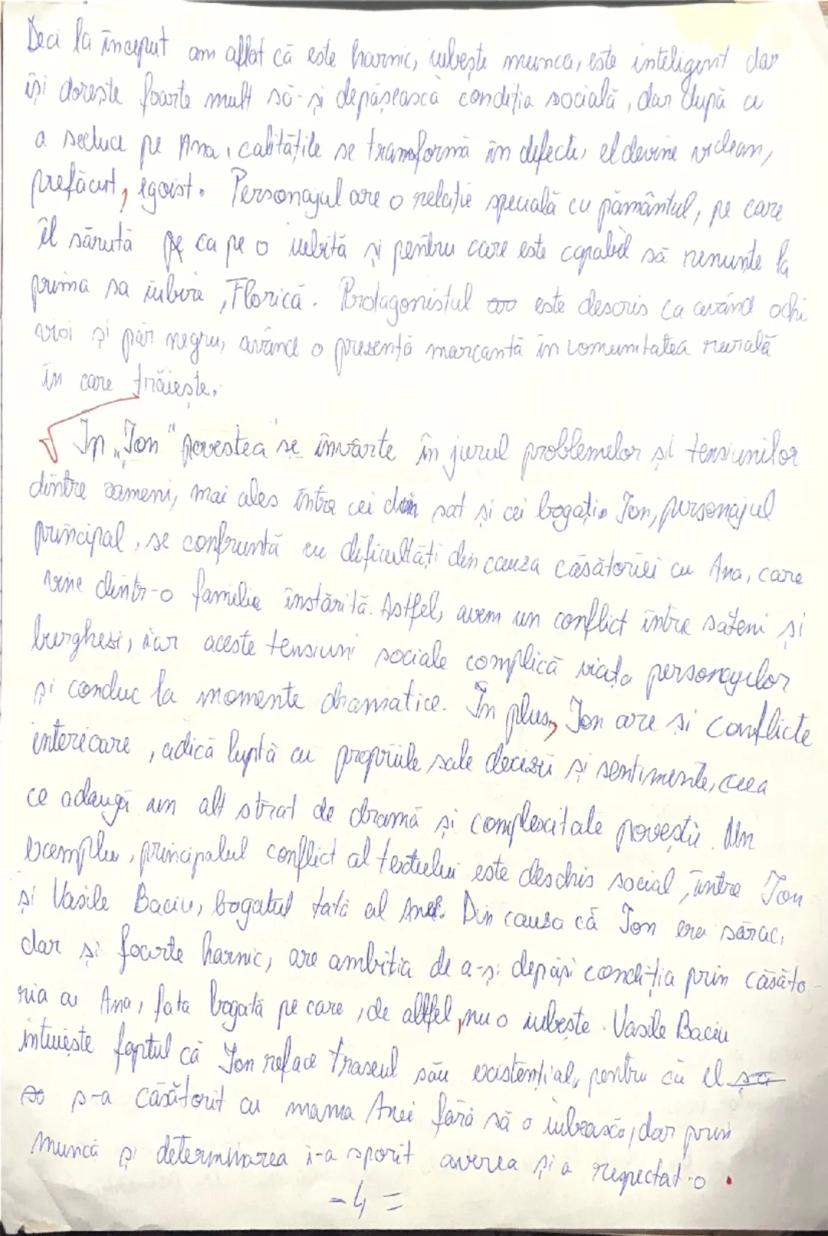 Deci la început am aflat că este harnic, iubește munca, este inteligent dar
își dorește foarte mult să-și depășească condiția socială, dar după ce
a seduce pe Ana, calitățile se transformă în defecte, el devine viclean,
prefăcut, egoist. Personajul are o relație specială cu pământul, pe care
îl sărută pe ca pe o iubită și pentru care este capabil să renunte la
prima sa iubire, Florică. Protagonistul este descris ca având ochi
vioi și păr negru, având o prezență marcantă în comunitatea rurală
în care trăiește.
In „Ion" povestea se învârte în jurul problemelor și tensiunilor
dintre oameni, mai ales între cei din sat și cei bogați. Ion, personajul
principal, se confruntă cu dificultăți din cauza căsătoriei cu Ana, care
vine dintr-o familie înstărită. Astfel, avem un conflict între săteni și
burghezi, iar aceste tensiuni sociale complică viața personajelor
și conduc la momente dramatice. În plus, Ion are si conflicte
interioare, adică luptă cu propriile sale decizii și sentimente, ceea
ce adaugă un alt strat de dramă și complexitate poveștii. Un
exemplu, principalul conflict al textului este deschis social, între Ion
și Vasile Baciu, bogatul tată al Anei. Din cauza că Ion era sărac,
dar și foarte harnic, are ambiția de a-și depăși condiția prin căsăto-
ria cu Ana, fata bogată pe care, de altfel, nu o iubește. Vasile Baciu
intuiește faptul că Ion reface traseul său existențial, pentru că el
s-a căsătorit cu mama Anei fără să o iubească, dar prin
muncă și determinarea i-a sporit averea și a respectat-o.
- 4 =